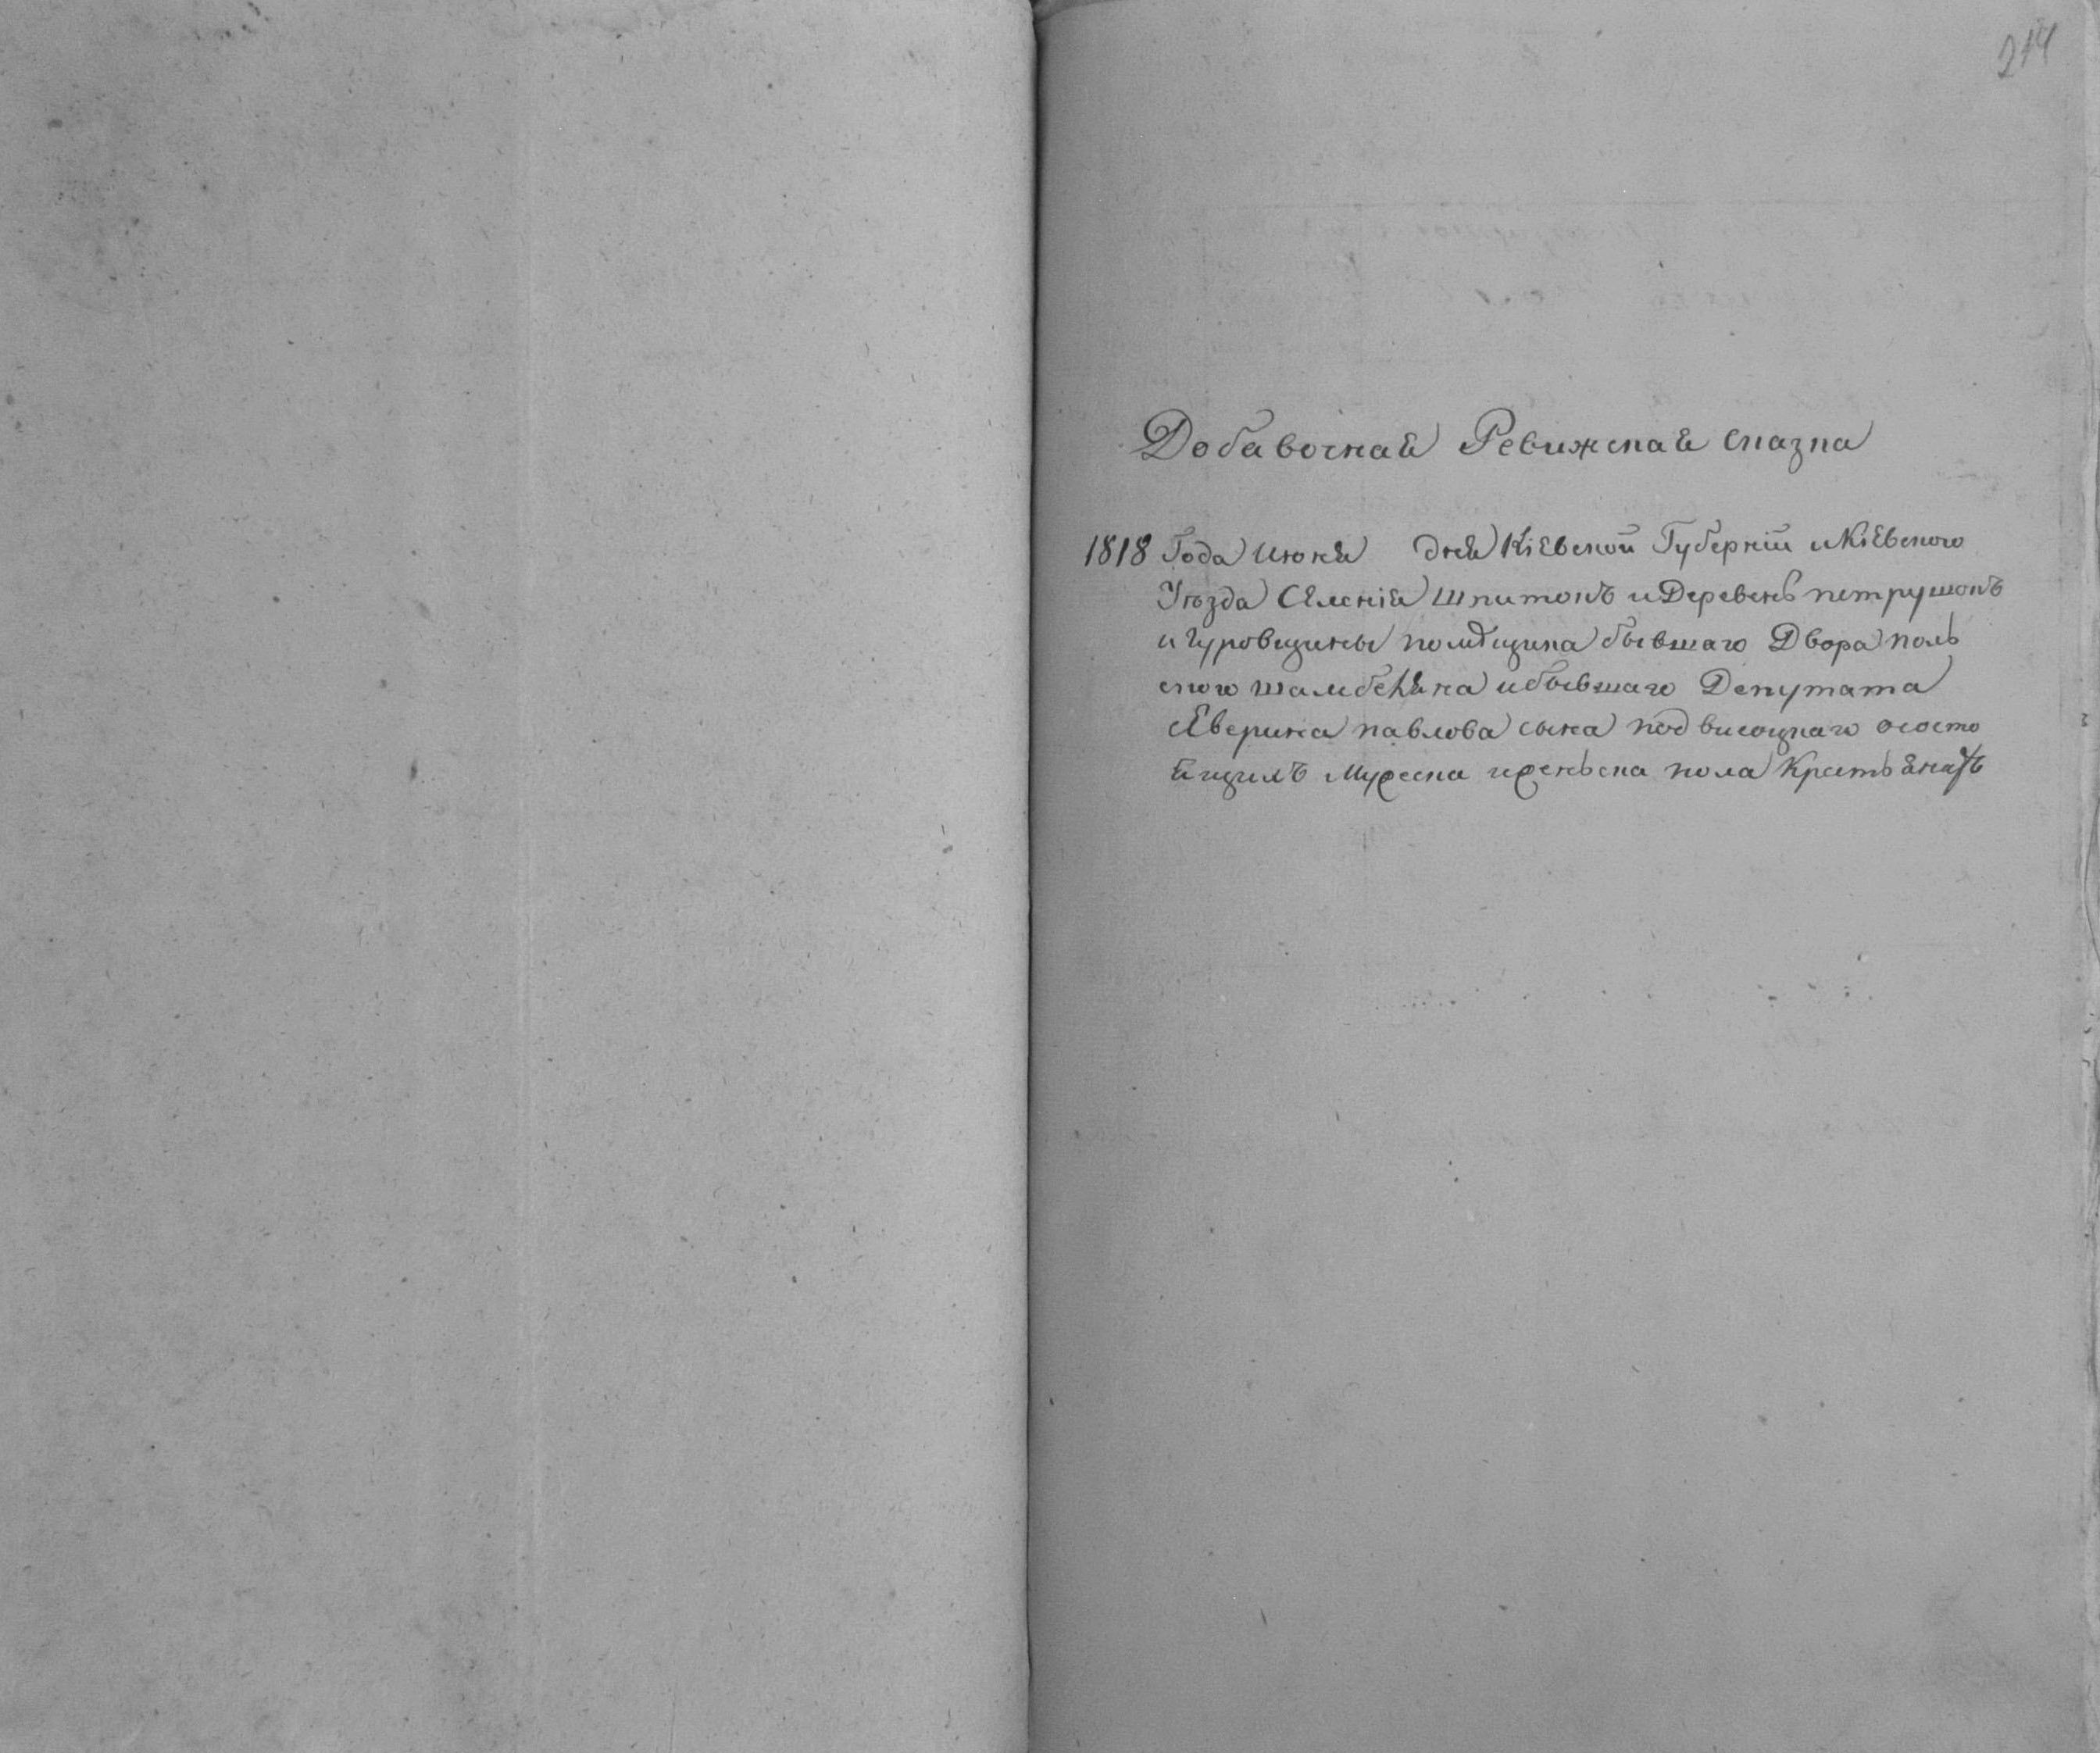 214
Добавочная Ревижская сказка
1818 Года июня дня Кіевской Губерніи и Кіевского
Уѣзда Селенія Шпитокъ и Деревень петрушокъ
и Гуровщины помѣщика бывшаго Двора поль
ского шамбеляна и бывшаго Депутата
Северина павлова сына подвисоцкаго о состо
ящихъ мужеска и женьска пола Крестьянахъ